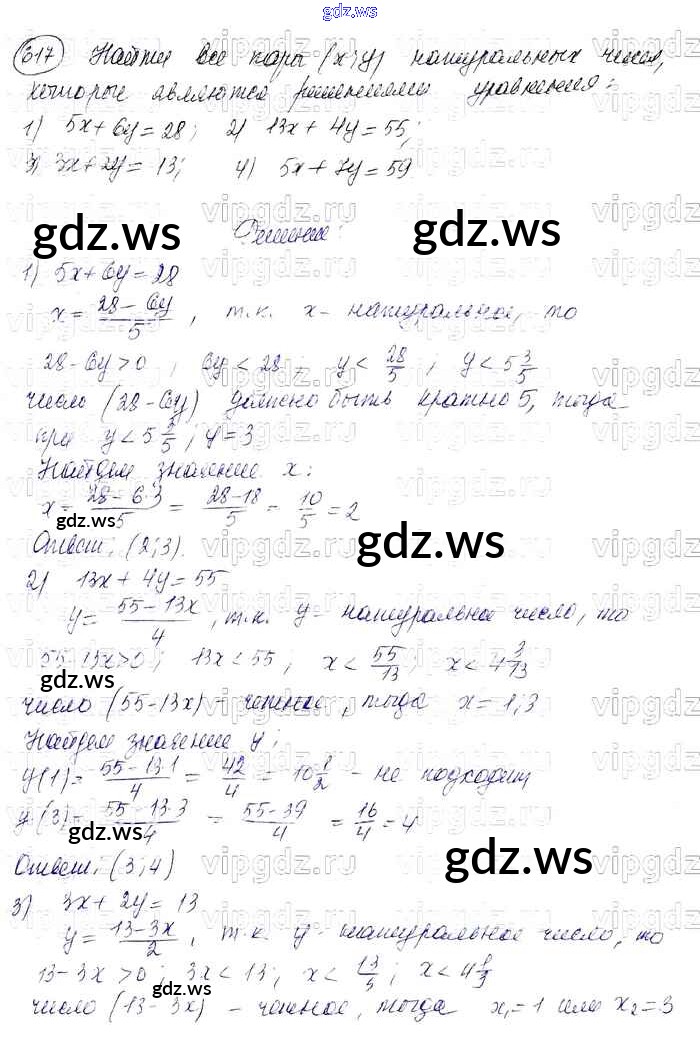 gdz.ws
617 Найти все пары (x; y) натуральных чисел,
которые являются решениями уравнения:
1) 5x + 6y = 28; 2) 13x + 4y = 55;
3) 3x + 2y = 13; 4) 5x + 7y = 59
Решение:
1) 5x + 6y = 28
x = (28 - 6y)/5, т.к. x - натуральное, то
28 - 6y > 0; 6y < 28; y < 28/5; y < 5 3/5
число (28 - 6y) должно быть кратно 5, тогда
при y < 5 3/5; y = 3
Найдем значение x:
x = (28 - 6·3)/5 = (28 - 18)/5 = 10/5 = 2
Ответ: (2; 3).
2) 13x + 4y = 55
y = (55 - 13x)/4, т.к. y - натуральное число, то
55 - 13x > 0; 13x < 55; x < 55/13; x < 4 3/13
число (55 - 13x) - четное, тогда x = 1; 3
Найдем значение y:
y(1) = (55 - 13·1)/4 = 42/4 = 10 1/2 - не подходит
y(3) = (55 - 13·3)/4 = (55 - 39)/4 = 16/4 = 4
Ответ: (3; 4)
3) 3x + 2y = 13
y = (13 - 3x)/2, т.к. y - натуральное число, то
13 - 3x > 0; 3x < 13; x < 13/3; x < 4 1/3
число (13 - 3x) - четное, тогда x₁ = 1 или x₂ = 3